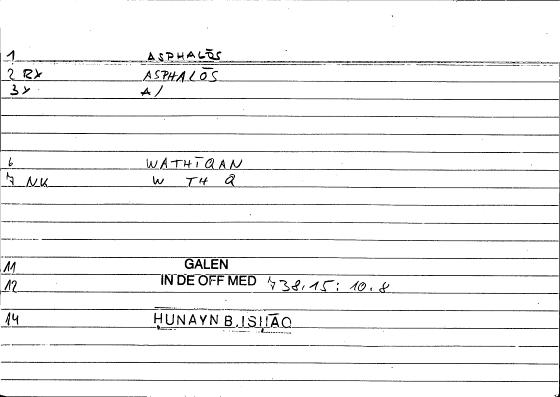 1 ASPHALŌS
2 RX ASPHALŌS
3 X A/
6 WATHĪQAN
7 NK W TH Q
11 GALEN
12 IN DE OFF MED 738.15: 10.8
14 ḤUNAYN B. ISḤĀQ